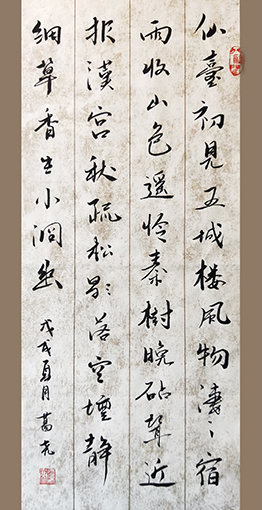 仙臺初見五城楼風物淒〻宿
雨收山色遥怜秦樹晚砧聲近
报漢宫秋疏松影落空壇静
细草香生小洞幽
戊戌夏月